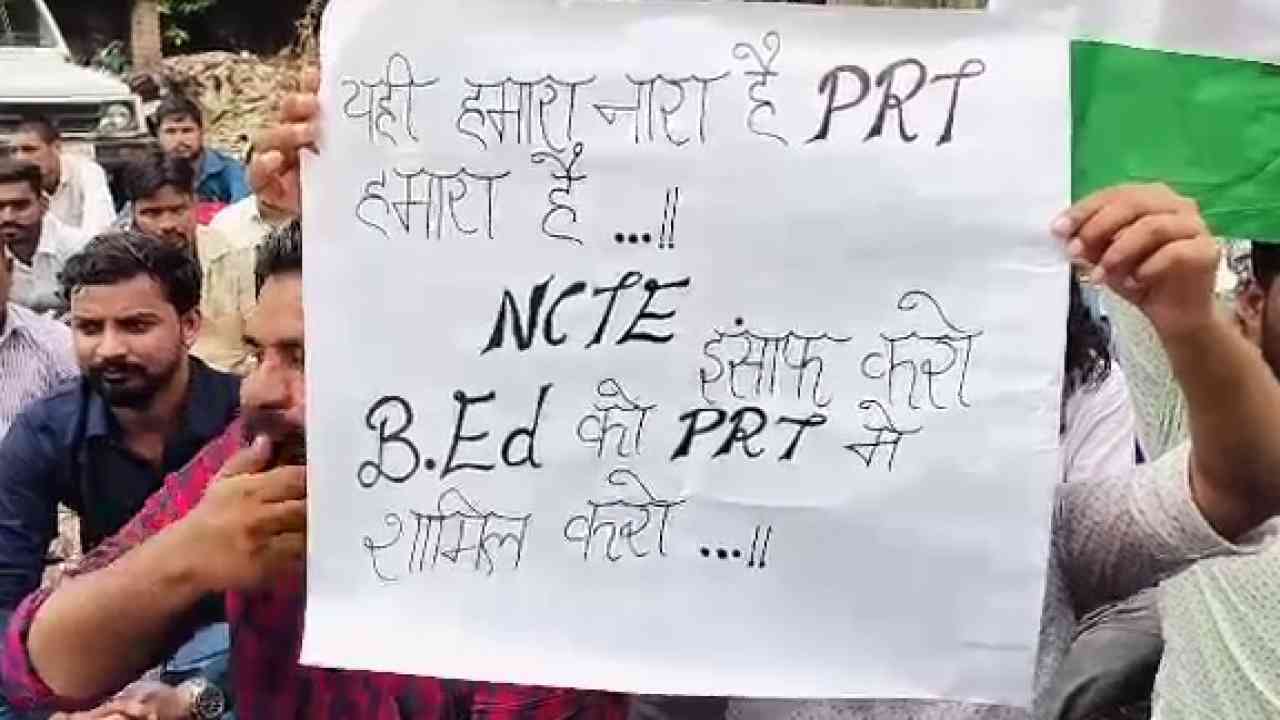 यही हमारा नारा है PRT
हमारा है ...!!
NCTE इंसाफ करो
B.Ed को PRT मे
शामिल करो ...!!